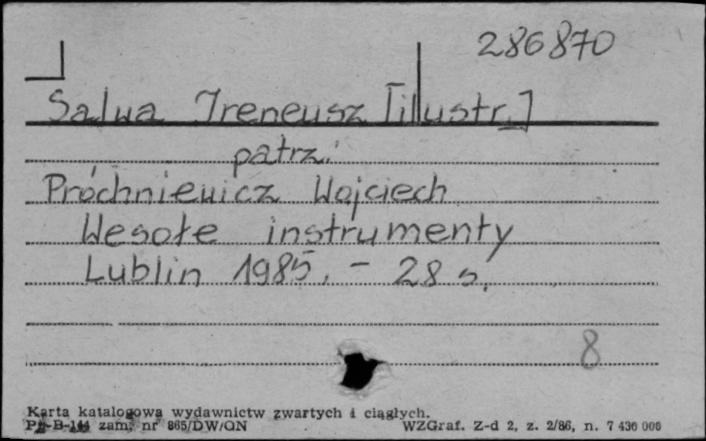 286870
Salwa Ireneusz [illustr.]
patrz:
Próchniewicz Wojciech
Wesołe instrumenty
Lublin 1985. - 28 s.
8
Karta katalogowa wydawnictw zwartych i ciągłych.
zam. nr 865/DW/QN WZGraf. Z-d 2, z. 2/86, n. 7 430 000